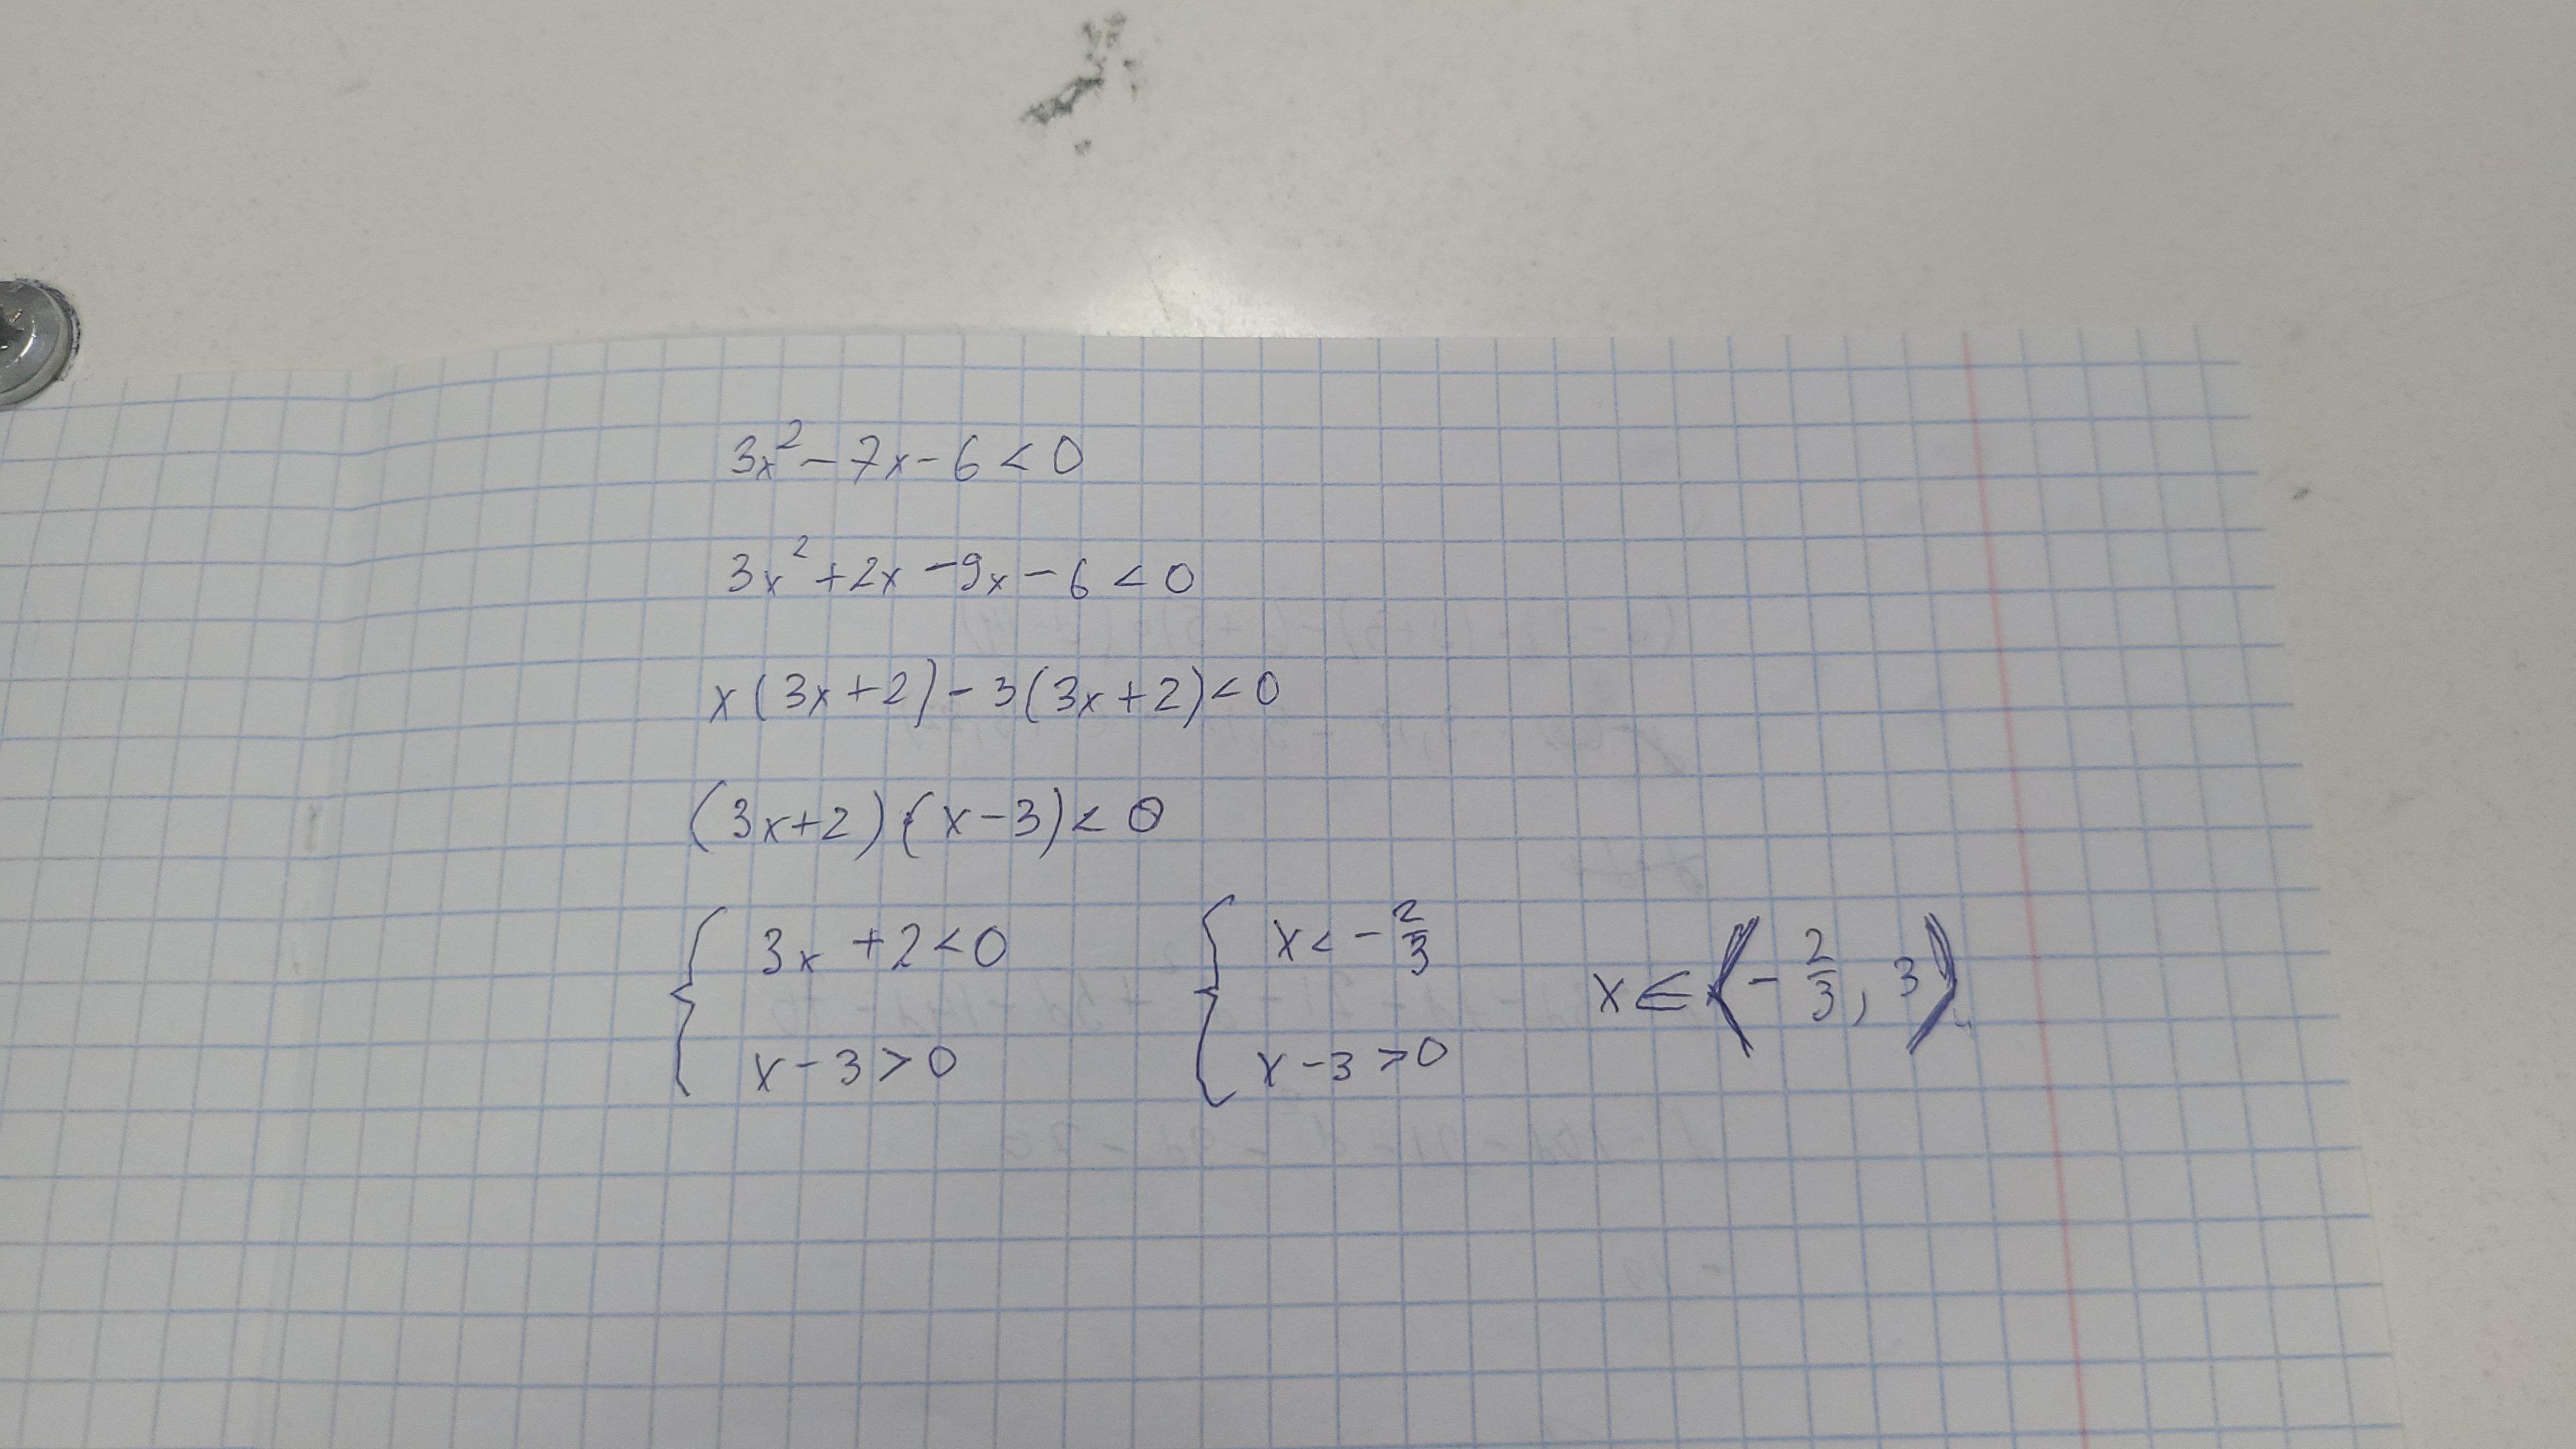 3x² - 7x - 6 < 0
3x² + 2x - 9x - 6 < 0
x(3x + 2) - 3(3x + 2) < 0
(3x + 2)(x - 3) < 0
{ 3x + 2 < 0 { x < -2/3 x ∈ (-2/3, 3)
x - 3 > 0 x - 3 > 0